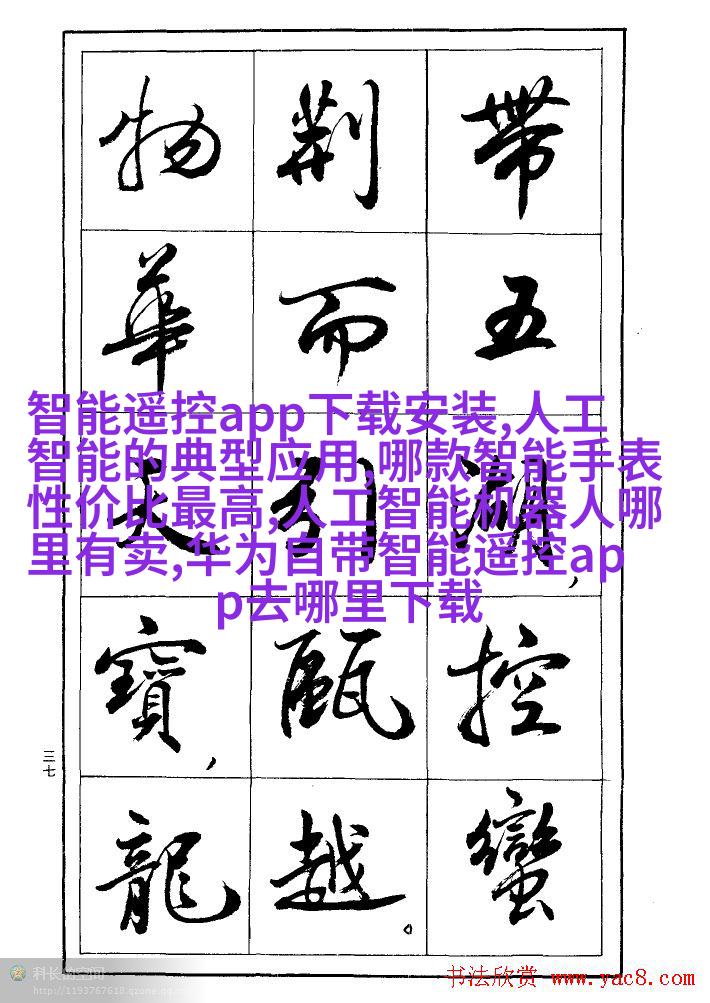 帶五湖,控蠻
荊而引甌越。
物華天寶,龍
智能遥控app下载安装,人工
智能的典型应用,哪款智能手表
性价比最高,人工智能机器人哪
里有卖,华为自带智能遥控ap
p去哪里下载
三七
科长的空间
http://1193767618.qzone.qq.
书法欣赏 www.yac8.com